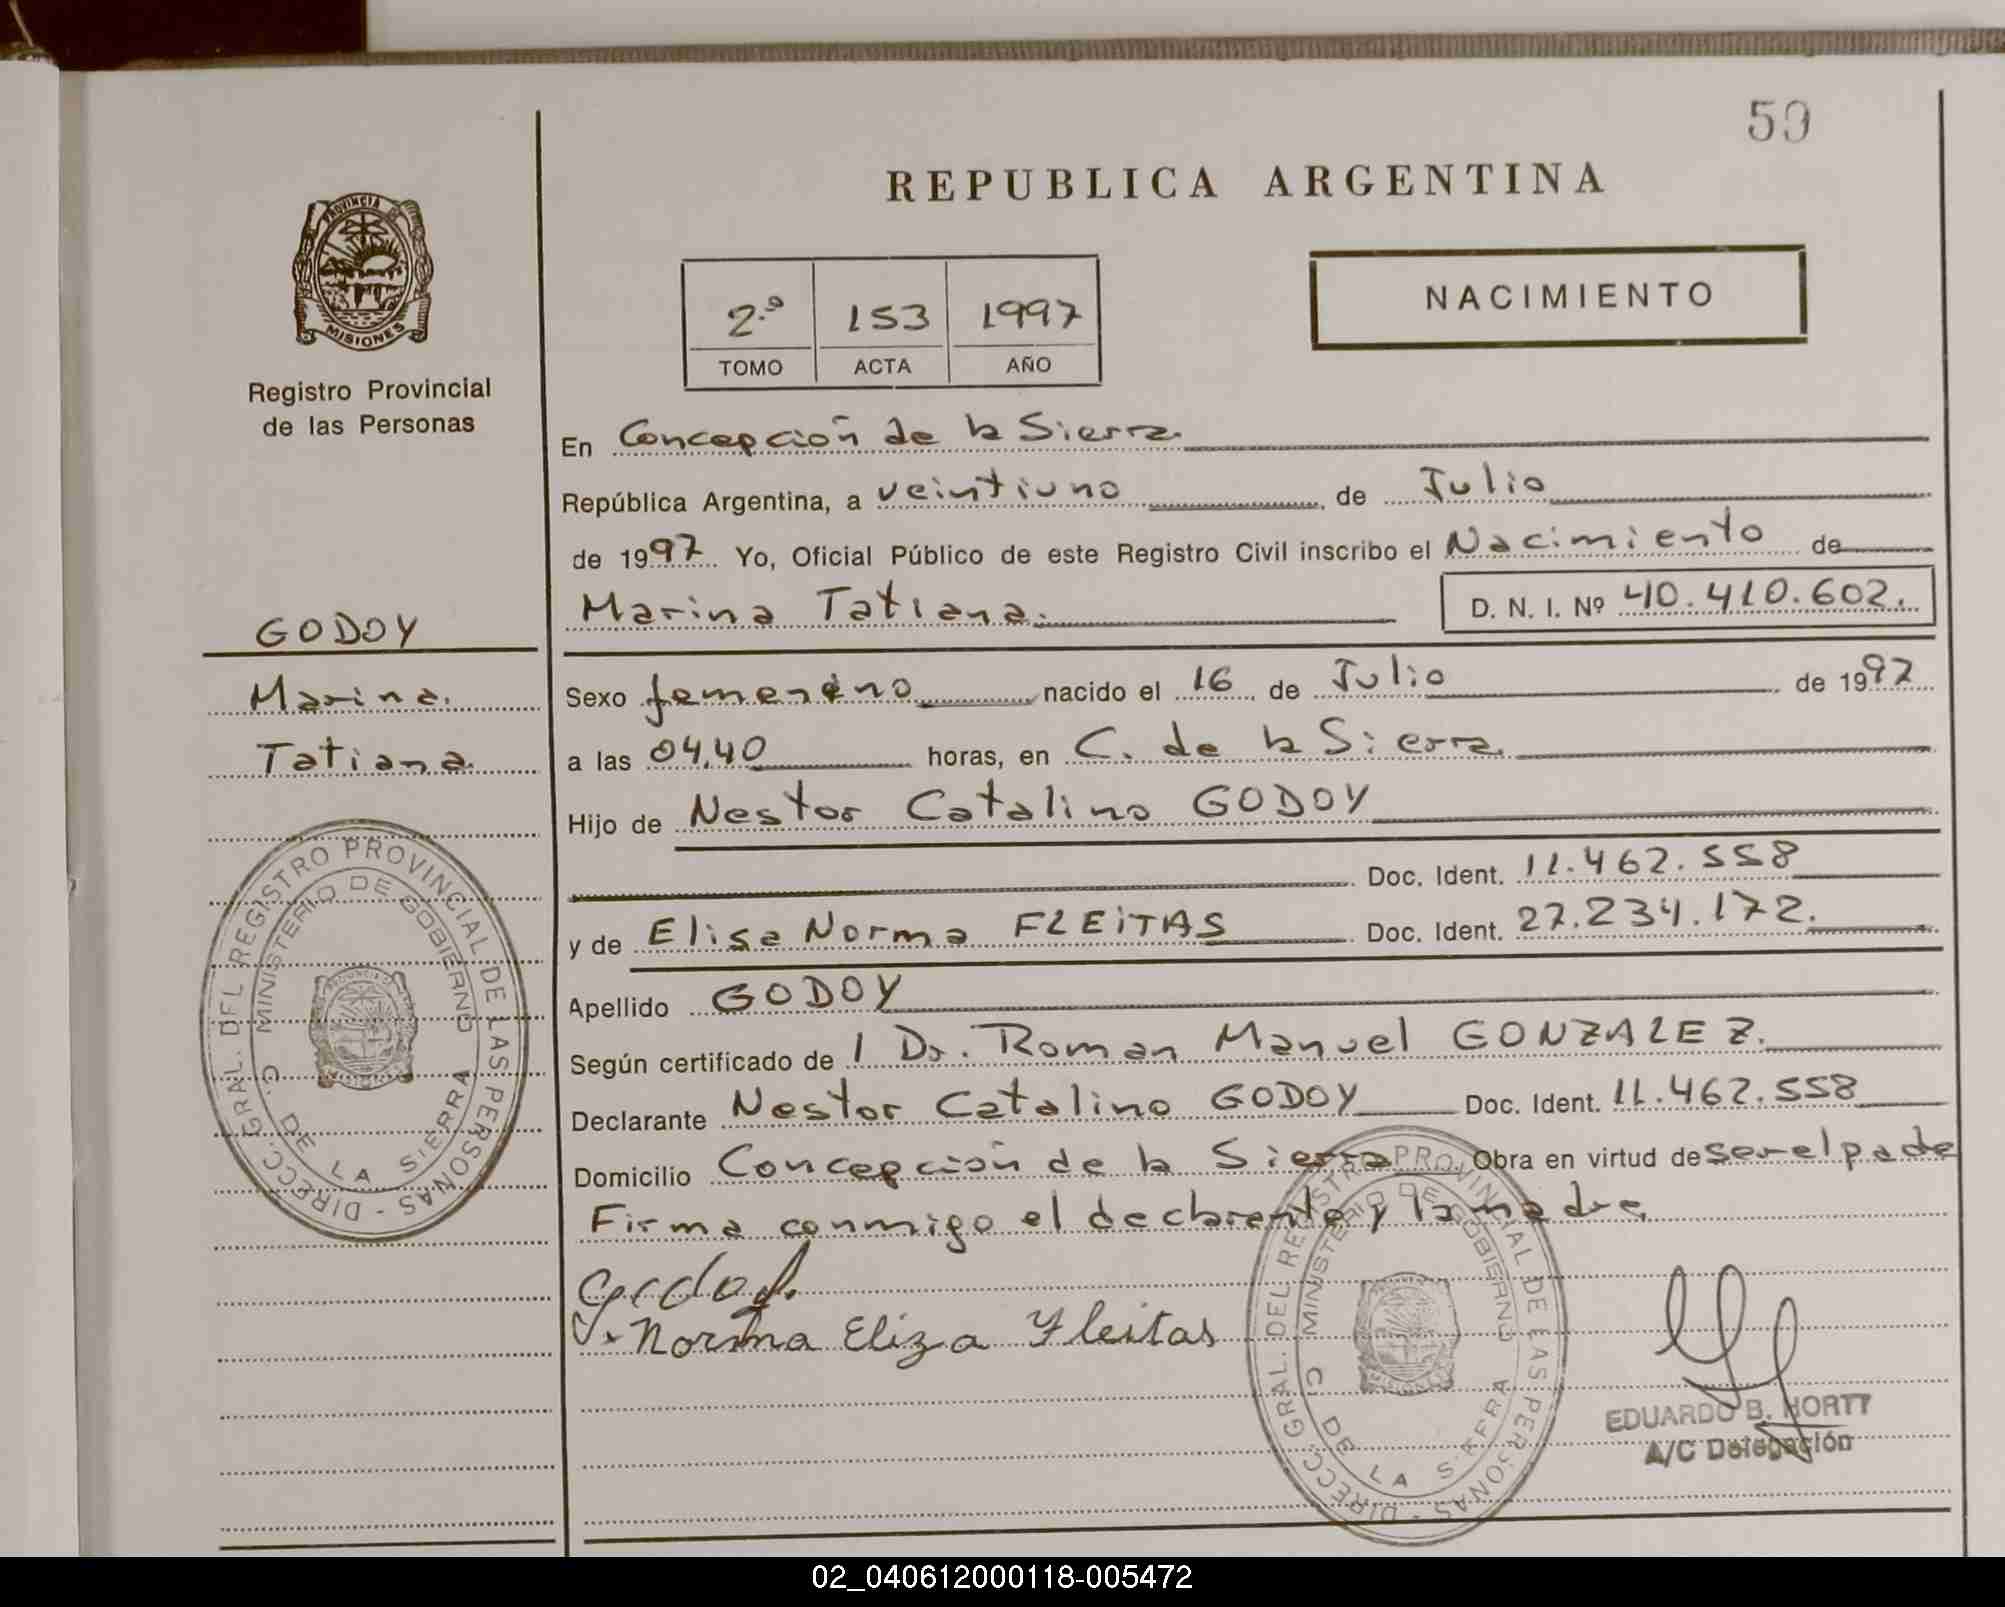 50
REPUBLICA ARGENTINA
PROVINCIA DE
MISIONES
Registro Provincial
de las Personas
2.º 153 1997
TOMO ACTA AÑO
NACIMIENTO
En Concepción de la Sierra.
República Argentina, a veintiuno, de Julio
de 1997. Yo, Oficial Público de este Registro Civil inscribo el Nacimiento de
Marina Tatiana. D. N. I. Nº 40.410.602.
GODOY
Marina.
Tatiana
Sexo femenino nacido el 16 de Julio de 1997
a las 04,40 horas, en C. de la Sierra.
Hijo de Nestor Catalino GODOY
Doc. Ident. 11.462.558
y de Elisa Norma FLEiTAS Doc. Ident. 27.234.172.
Apellido GODOY
Según certificado de l Dr. Roman Manuel GONZALEZ.
Declarante Nestor Catalino GODOY Doc. Ident. 11.462.558
Domicilio Concepción de la Sierra Obra en virtud de ser el padre
Firma conmigo el declarante y la madre.
Norma Eliza Fleitas
DIRECC. GRAL. DEL REGISTRO PROVINCIAL DE LAS PERSONAS -
MINISTERIO DE GOBIERNO
C. DE LA SIERRA
DIRECC. GRAL. DEL REGISTRO PROVINCIAL DE LAS PERSONAS -
MINISTERIO DE GOBIERNO
C DE LA SIERRA
MISIONES
EDUARDO B. HORTT
A/C Delegación
02_040612000118-005472